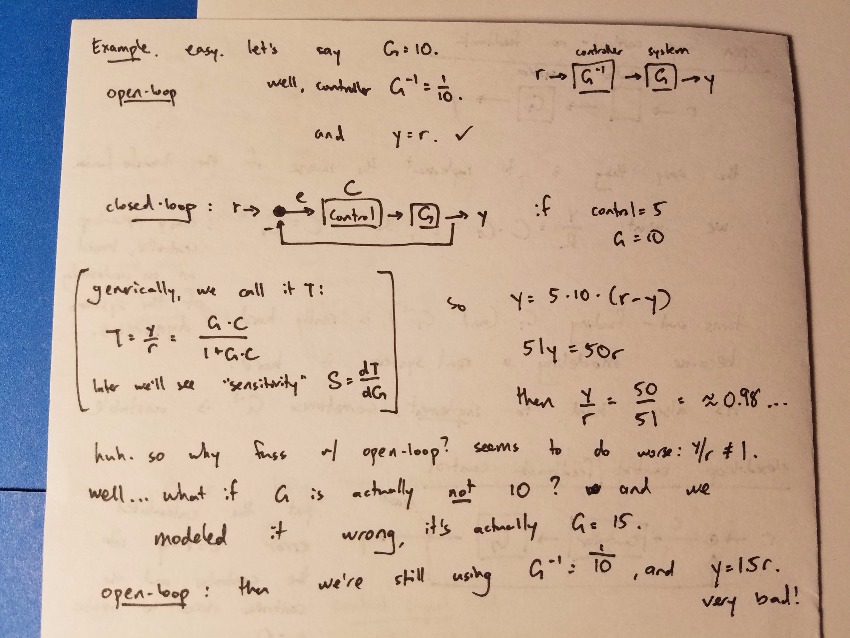 Example. easy. let's say G=10.
controller system
r→ G⁻¹ → G → y
open-loop well, controller G⁻¹ = 1/10.
and y=r. ✓
closed-loop: r→ e C control → G → y
−
if control = 5
G = 10
[generically, we call it T:
T = y/r = G·C / 1+G·C
later we'll see "sensitivity" S = dT/dG]
so y = 5·10·(r-y)
51y = 50r
then y/r = 50/51 = ≈0.98...
huh. so why fuss w/ open-loop? seems to do worse: y/r ≠ 1.
well... what if G is actually not 10? and we
modeled it wrong, it's actually G=15.
open-loop: then we're still using G⁻¹ = 1/10, and y=1.5r.
very bad!